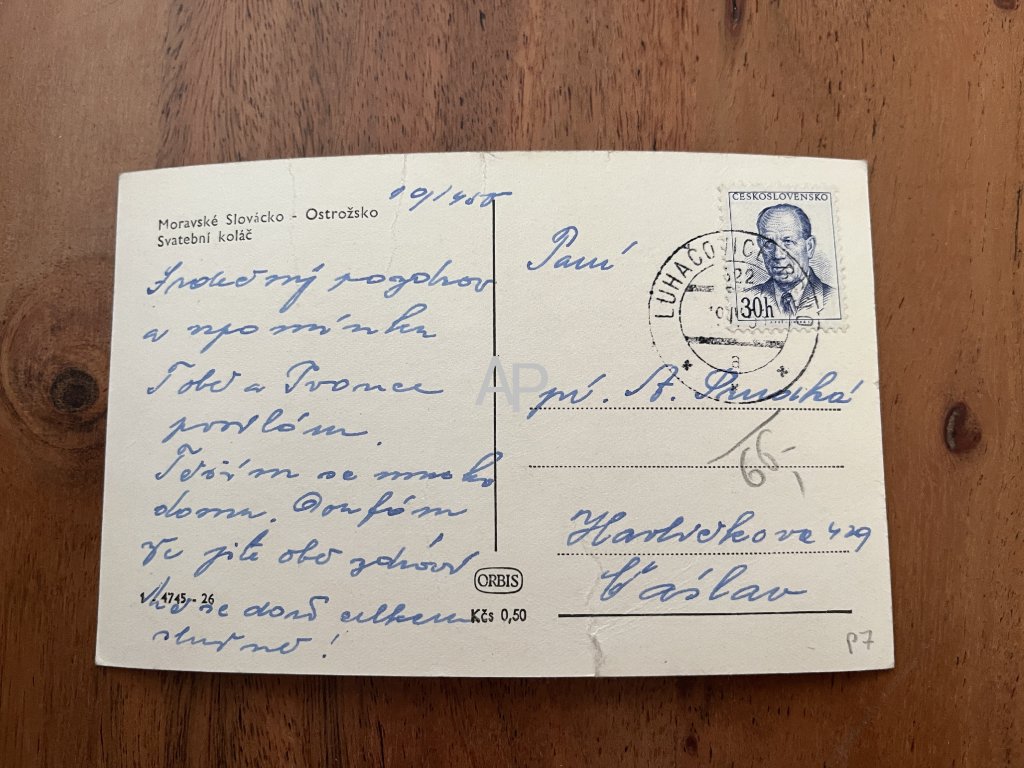 Moravské Slovácko - Ostrožsko
Svatební koláč
Srdečný pozdrav
a vzpomínku
Tobě a Ivance
posílám.
Těším se moc
domu. Doufám
že jste obě zdrávy
se daří celkem
slušně!
1 - 4745 - 26
ORBIS
Kčs 0,50
AP
ČESKOSLOVENSKO
30h
LUHAČOVICE
a
Paní
pí. A.
66,-
Havlíčkova 429
Čáslav
P7